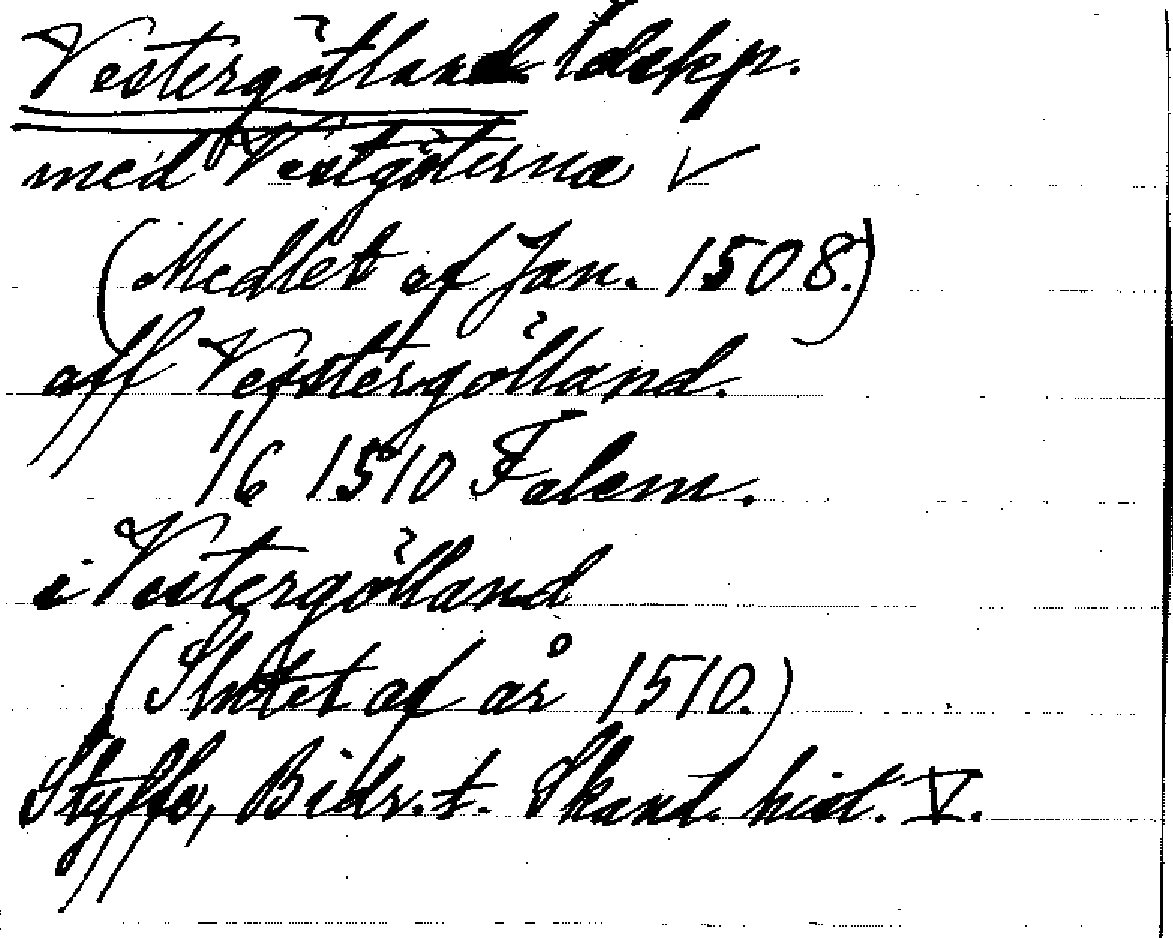 Vestergötland ldskp.
med Vestgöterna √
(Medlet af Jan. 1508.)
aff Vesstergötland.
1/6 1510 Falem.
i Vestergötland
(Slutet af år 1510.)
Styffe, Bidr. t. Skand. hist. V.